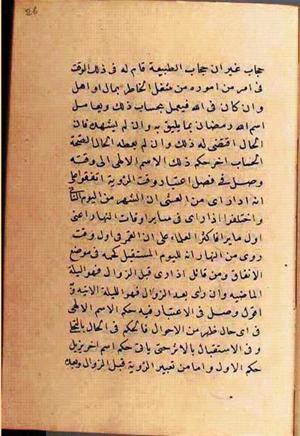 26
حجاب غير ان حجاب الطبيعة قام له في ذلك الوقت
في امر من اموره من شغل الخاطر بمال او اهل
وان كان في الله فيعمل بحساب ذلك ويعامل
اسم الله رمضان بما يليق به وان لم يشهد فان
الحال اقتضى له ذلك وان لم يعطه الحال لصحة
الحساب اخر حكم ذلك الاسم الالهي الى وقته
وصل في فصل اعتبار وقت الرؤية اتفقوا على
انه اذا رأى من العشى ان الشهر من اليوم الثاني
واختلفوا اذا رأى في سائر اوقات النهار اعني
اول ما يرا فاكثر العلماء على ان القمر في اول وقت
روى من النهار انه لليوم المستقبل كحكمه في موضع
الاتفاق ومن قائل اذا رى قبل الزوال فهو لليلة
الماضيه وان رأى بعد الزوال فهو لليلة الآتيه وبه
اقول وصل في الاعتبار فيه حكم الاسم الالهي
في اى حال ظهر من الاحوال فالحكم له في الحال بالتجلي
و في الاستقبال بالاثر حتى يأتي حكم اسم اخر يزيل
حكم الاول و اما من تعبير الرؤية قبل الزوال وبعد